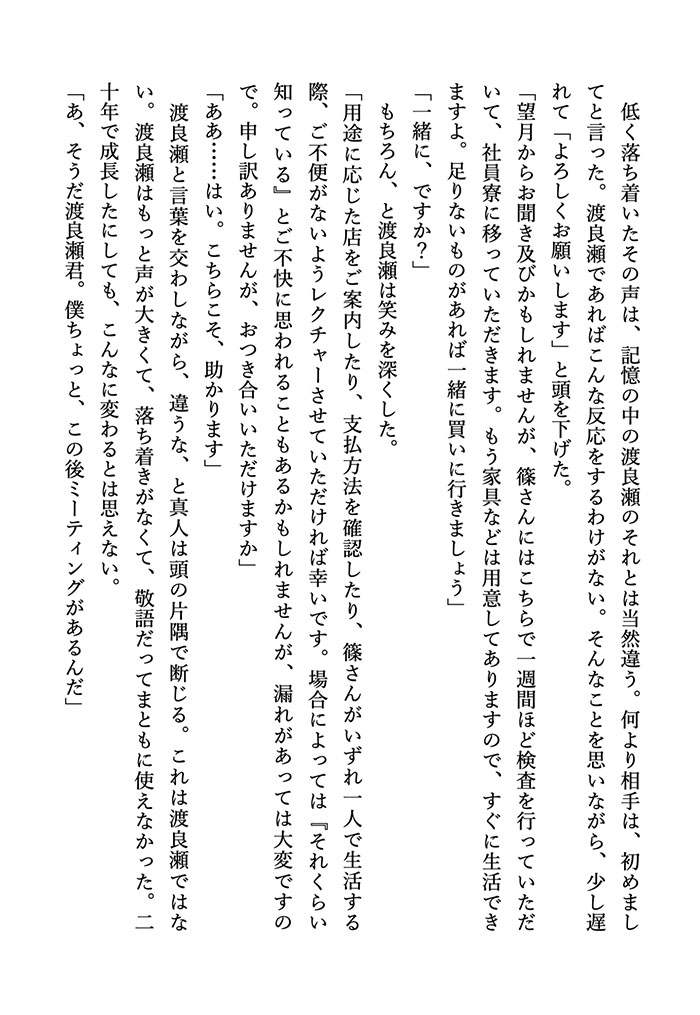 低く落ち着いたその声は、記憶の中の渡良瀬のそれとは当然違う。何より相手は、初めまし
てと言った。渡良瀬であればこんな反応をするわけがない。そんなことを思いながら、少し遅
れて「よろしくお願いします」と頭を下げた。
「望月からお聞き及びかもしれませんが、篠さんにはこちらで一週間ほど検査を行っていただ
いて、社員寮に移っていただきます。もう家具などは用意してありますので、すぐに生活でき
ますよ。足りないものがあれば一緒に買いに行きましょう」
「一緒に、ですか？」
　もちろん、と渡良瀬は笑みを深くした。
「用途に応じた店をご案内したり、支払方法を確認したり、篠さんがいずれ一人で生活する
際、ご不便がないようレクチャーさせていただければ幸いです。場合によっては『それくらい
知っている』とご不快に思われることもあるかもしれませんが、漏れがあっては大変ですの
で。申し訳ありませんが、おつき合いいただけますか」
「ああ……はい。こちらこそ、助かります」
　渡良瀬と言葉を交わしながら、違うな、と真人は頭の片隅で断じる。これは渡良瀬ではな
い。渡良瀬はもっと声が大きくて、落ち着きがなくて、敬語だってまともに使えなかった。二
十年で成長したにしても、こんなに変わるとは思えない。
「あ、そうだ渡良瀬君。僕ちょっと、この後ミーティングがあるんだ」